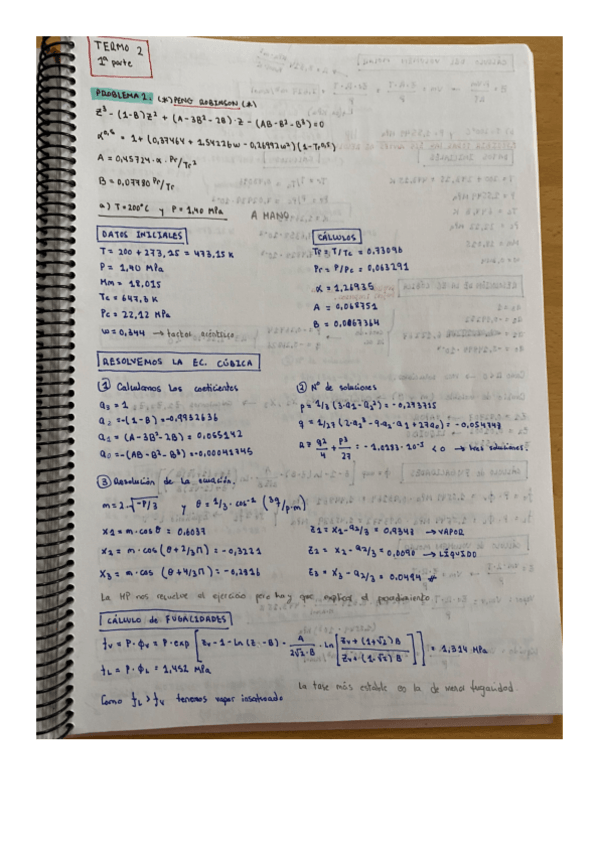 TERMO 2
1ª parte
PROBLEMA 2. (*) PENG ROBINSON (*)
Z³ - (1-B)Z² + (A-3B²-2B)·Z - (AB-B²-B³)=0
α^0,5 = 1+(0,37464 + 1,54226w - 0,26992w²)(1-Tr^0,5)
A = 0,45724·α·Pr/Tr²
B = 0,07780 Pr/Tr
a) T=200°C y P=1,40 MPa A MANO
DATOS INICIALES
T = 200 + 273,15 = 473,15 K
P = 1,40 MPa
Mm = 18,015
Tc = 647,3 K
Pc = 22,12 MPa
w = 0,344 → factor acéntrico
CÁLCULOS
Tr = T/Tc = 0,73096
Pr = P/Pc = 0,063291
α = 1,26935
A = 0,068751
B = 0,0067364
RESOLVEMOS LA EC. CÚBICA
① Calculamos los coeficientes
a₃ = 1
a₂ = -(1-B) = -0,9932636
a₁ = (A-3B²-2B) = 0,055142
a₀ = -(AB-B²-B³) = -0,00041745
② Nº de soluciones
p = 1/3 (3·a₁-a₂²) = -0,273715
q = 1/27 (2·a₂³-9·a₂·a₁+27a₀) = -0,054743
= q²/4 + p³/27 = -1,0193·10⁻⁵ < 0 → tres soluciones.
③ Resolución de la ecuación.
m = 2·√-P/3 y θ = 1/3·cos⁻¹ (3q/p·m)
X₁ = m·cosθ = 0,6037
X₂ = m·cos (θ+2/3π) = -0,3221
X₃ = m·cos (θ+4/3π) = -0,2816
Z₁ = X₁-a₂/3 = 0,9347 → VAPOR
Z₂ = X₂-a₂/3 = 0,0090 → LÍQUIDO
Z₃ = X₃-a₂/3 = 0,0494
La HP nos resuelve el ejercicio pero hay que explicar el procedimiento.
CÁLCULO DE FUGACIDADES
fv = P·ϕv = P·exp [Zv-1-Ln(Z-B) - A/2√2·B · Ln [Zv+(1+√2)B / Zv+(1-√2)B]] = 1,314 MPa
fL = P·ϕL = 1,452 MPa
La fase más estable es la de menor fugacidad.
Como fL > fv tenemos vapor insaturado